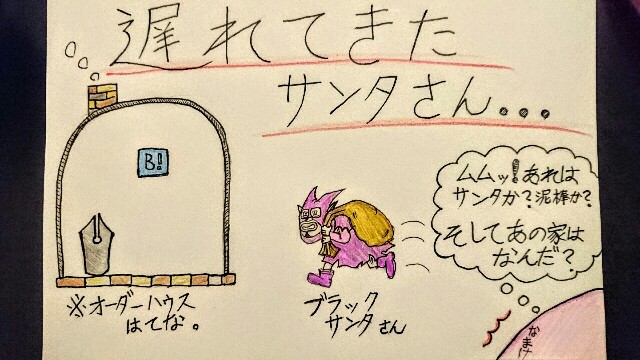 遅れてきた
サンタさん...
B!
ムムッ!あれは
サンタか?泥棒か?
そしてあの家は
なんだ?
※オーダーハウス
はてな。
ブラック
サンタさん
なまけ